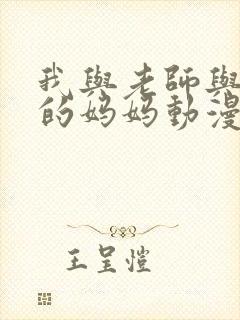 我與老師與
的媽媽動漫
王呈愷